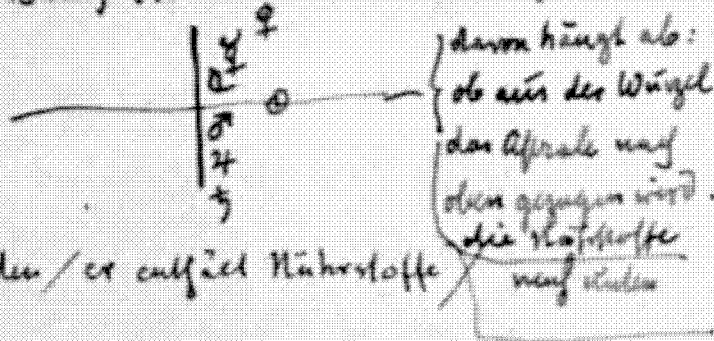 ♀
☿
☉
♂
♃
♄
davon hängt ab:
ob aus der Wurzel
das Astrale nach
oben gezogen wird.
die Nährstoffe
nach unten
den / er enthält Nährstoffe